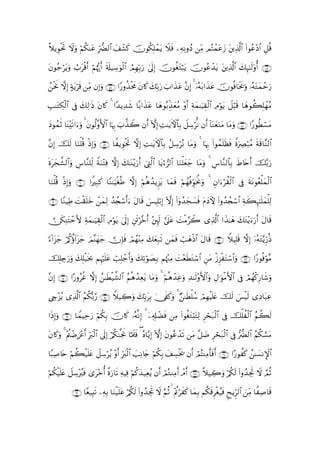 قُلِ ٱدْعُوا۟ ٱلَّذِينَ زَعَمْتُم مِّن دُونِهِۦ فَلَا يَمْلِكُونَ كَشْفَ ٱلضُّرِّ عَنكُمْ وَلَا تَحْوِيلًا
﴿٥٦﴾ أُو۟لَٰٓئِكَ ٱلَّذِينَ يَدْعُونَ يَبْتَغُونَ إِلَىٰ رَبِّهِمُ ٱلْوَسِيلَةَ أَيُّهُمْ أَقْرَبُ وَيَرْجُونَ
رَحْمَتَهُۥ وَيَخَافُونَ عَذَابَهُۥٓ ۚ إِنَّ عَذَابَ رَبِّكَ كَانَ مَحْذُورًا ﴿٥٧﴾ وَإِن مِّن قَرْيَةٍ إِلَّا نَحْنُ
مُهْلِكُوهَا قَبْلَ يَوْمِ ٱلْقِيَٰمَةِ أَوْ مُعَذِّبُوهَا عَذَابًا شَدِيدًا ۚ كَانَ ذَٰلِكَ فِى ٱلْكِتَٰبِ
مَسْطُورًا ﴿٥٨﴾ وَمَا مَنَعَنَآ أَن نُّرْسِلَ بِٱلْءَايَٰتِ إِلَّآ أَن كَذَّبَ بِهَا ٱلْأَوَّلُونَ ۚ وَءَاتَيْنَا ثَمُودَ
ٱلنَّاقَةَ مُبْصِرَةً فَظَلَمُوا۟ بِهَا ۚ وَمَا نُرْسِلُ بِٱلْءَايَٰتِ إِلَّا تَخْوِيفًا ﴿٥٩﴾ وَإِذْ قُلْنَا لَكَ إِنَّ
رَبَّكَ أَحَاطَ بِٱلنَّاسِ ۚ وَمَا جَعَلْنَا ٱلرُّءْيَا ٱلَّتِىٓ أَرَيْنَٰكَ إِلَّا فِتْنَةً لِّلنَّاسِ وَٱلشَّجَرَةَ
ٱلْمَلْعُونَةَ فِى ٱلْقُرْءَانِ ۚ وَنُخَوِّفُهُمْ فَمَا يَزِيدُهُمْ إِلَّا طُغْيَٰنًا كَبِيرًا ﴿٦٠﴾ وَإِذْ قُلْنَا
لِلْمَلَٰٓئِكَةِ ٱسْجُدُوا۟ لِءَادَمَ فَسَجَدُوٓا۟ إِلَّآ إِبْلِيسَ قَالَ ءَأَسْجُدُ لِمَنْ خَلَقْتَ طِينًا ﴿٦١﴾
قَالَ أَرَءَيْتَكَ هَٰذَا ٱلَّذِى كَرَّمْتَ عَلَىَّ لَئِنْ أَخَّرْتَنِ إِلَىٰ يَوْمِ ٱلْقِيَٰمَةِ لَأَحْتَنِكَنَّ
ذُرِّيَّتَهُۥٓ إِلَّا قَلِيلًا ﴿٦٢﴾ قَالَ ٱذْهَبْ فَمَن تَبِعَكَ مِنْهُمْ فَإِنَّ جَهَنَّمَ جَزَآؤُكُمْ جَزَآءً
مَّوْفُورًا ﴿٦٣﴾ وَٱسْتَفْزِزْ مَنِ ٱسْتَطَعْتَ مِنْهُم بِصَوْتِكَ وَأَجْلِبْ عَلَيْهِم بِخَيْلِكَ وَرَجِلِكَ
وَشَارِكْهُمْ فِى ٱلْأَمْوَٰلِ وَٱلْأَوْلَٰدِ وَعِدْهُمْ ۚ وَمَا يَعِدُهُمُ ٱلشَّيْطَٰنُ إِلَّا غُرُورًا ﴿٦٤﴾ إِنَّ
عِبَادِى لَيْسَ لَكَ عَلَيْهِمْ سُلْطَٰنٌ ۚ وَكَفَىٰ بِرَبِّكَ وَكِيلًا ﴿٦٥﴾ رَّبُّكُمُ ٱلَّذِى يُزْجِى
لَكُمُ ٱلْفُلْكَ فِى ٱلْبَحْرِ لِتَبْتَغُوا۟ مِن فَضْلِهِۦٓ ۚ إِنَّهُۥ كَانَ بِكُمْ رَحِيمًا ﴿٦٦﴾ وَإِذَا
مَسَّكُمُ ٱلضُّرُّ فِى ٱلْبَحْرِ ضَلَّ مَن تَدْعُونَ إِلَّآ إِيَّاهُ ۖ فَلَمَّا نَجَّىٰكُمْ إِلَى ٱلْبَرِّ أَعْرَضْتُمْ ۚ وَكَانَ
ٱلْإِنسَٰنُ كَفُورًا ﴿٦٧﴾ أَفَأَمِنتُمْ أَن يَخْسِفَ بِكُمْ جَانِبَ ٱلْبَرِّ أَوْ يُرْسِلَ عَلَيْكُمْ حَاصِبًا
ثُمَّ لَا تَجِدُوا۟ لَكُمْ وَكِيلًا ﴿٦٨﴾ أَمْ أَمِنتُمْ أَن يُعِيدَكُمْ فِيهِ تَارَةً أُخْرَىٰ فَيُرْسِلَ عَلَيْكُمْ
قَاصِفًا مِّنَ ٱلرِّيحِ فَيُغْرِقَكُم بِمَا كَفَرْتُمْ ۙ ثُمَّ لَا تَجِدُوا۟ لَكُمْ عَلَيْنَا بِهِۦ تَبِيعًا ﴿٦٩﴾